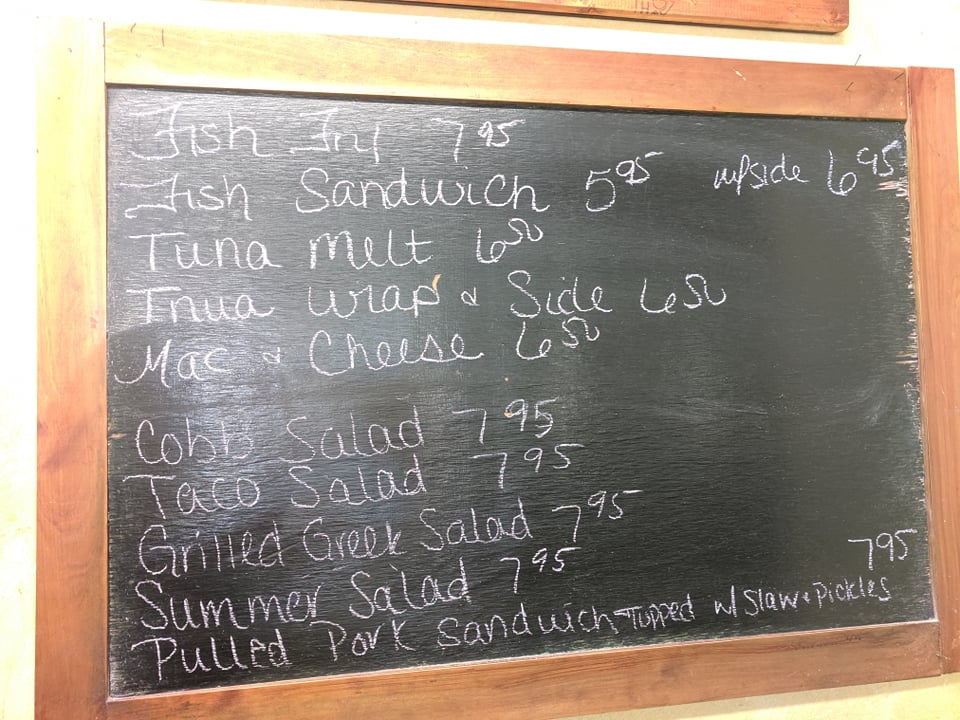 Fish Fry 7 95
Fish Sandwich 5 95 w/side 6 95
Tuna melt 6 50
Tnua wrap & Side 6 50
Mac & Cheese 6 50
Cobb Salad 7 95
Taco Salad 7 95
Grilled Greek Salad 7 95
Summer Salad 7 95
Pulled Pork Sandwich-Topped w/ Slaw & Pickles 7 95